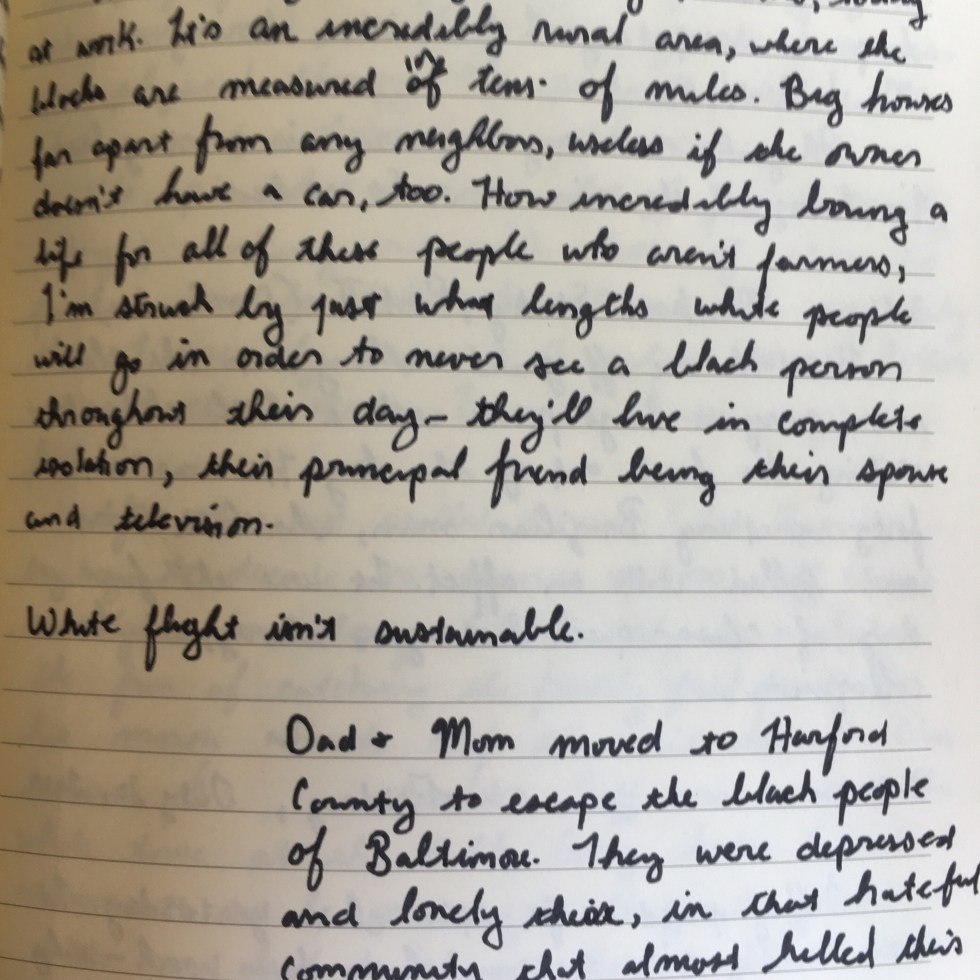 at work. It's an incredibly rural area, where the
blocks are measured in of tens of miles. Big houses
far apart from any neighbors, useless if the owner
doesn't have a car, too. How incredibly boring a
life for all of these people who aren't farmers,
I'm struck by just what lengths white people
will go in order to never see a black person
throughout their day – they'll live in complete
isolation, their principal friend being their spouse
and television.
White flight isn't sustainable.
Dad + Mom moved to Harford
County to escape the black people
of Baltimore. They were depressed
and lonely there, in that hateful
community that almost killed their